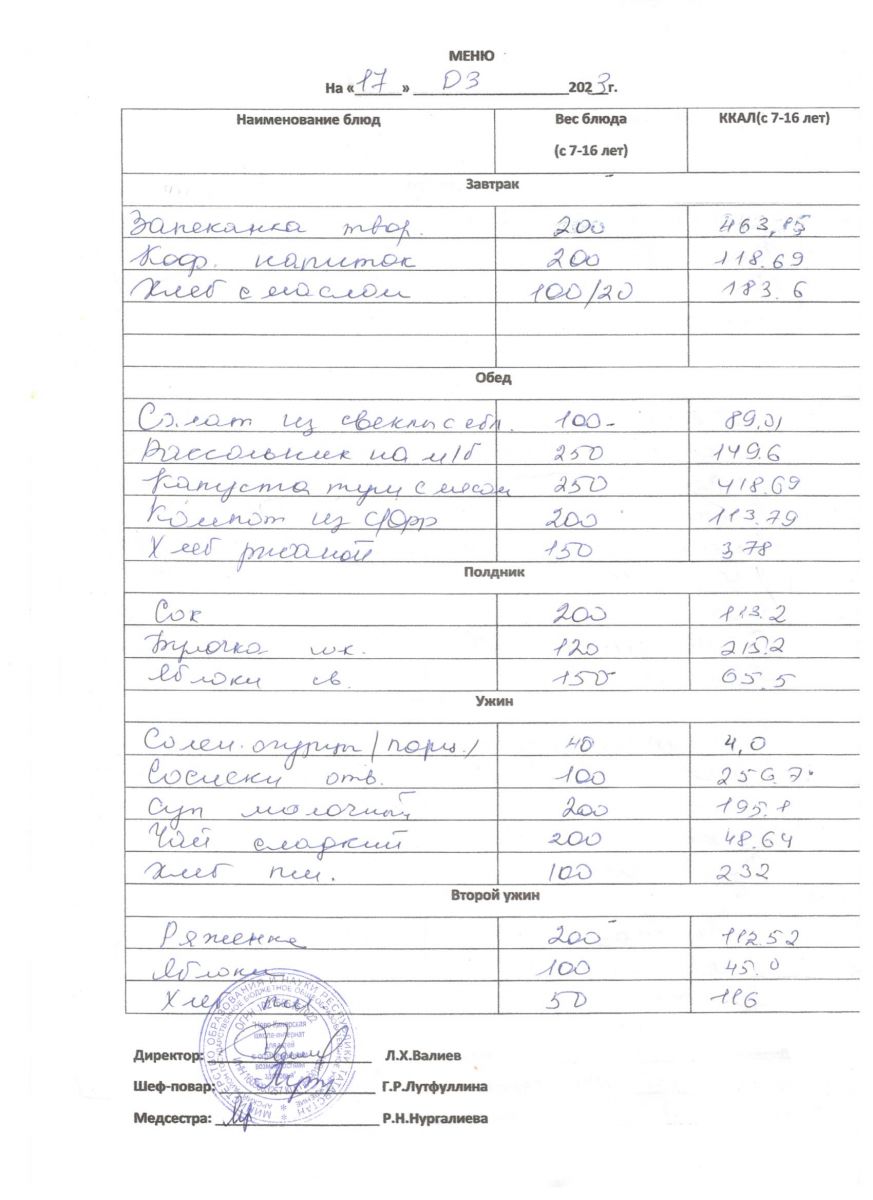 МЕНЮ
На «17» 03 2023г.
Наименование блюд Вес блюда (с 7-16 лет) ККАЛ(с 7-16 лет)
Завтрак
Запеканка твор. 200 463,85
Коф. напиток 200 118.69
Хлеб с маслом 100/20 183.6
Обед
Салат из свеклы с ябл. 100 89.01
Рассольник на м/б 250 149.6
Капуста туш с мясом 250 418.69
Компот из с/фр 200 113.79
Хлеб ржаной 150 378
Полдник
Сок 200 113.2
Булочка шк. 120 215.2
Яблоки св. 150 65.5
Ужин
Солен. огурцы /порц./ 40 4,0
Сосиски отв. 100 256.7
Суп молочный 200 195.1
Чай сладкий 200 48.64
Хлеб пш. 100 232
Второй ужин
Ряженка 200 112.52
Яблоки 100 45.0
Хлеб пш 50 116
Директор: Л.Х.Валиев
Шеф-повар: Г.Р.Лутфуллина
Медсестра: Р.Н.Нургалиева